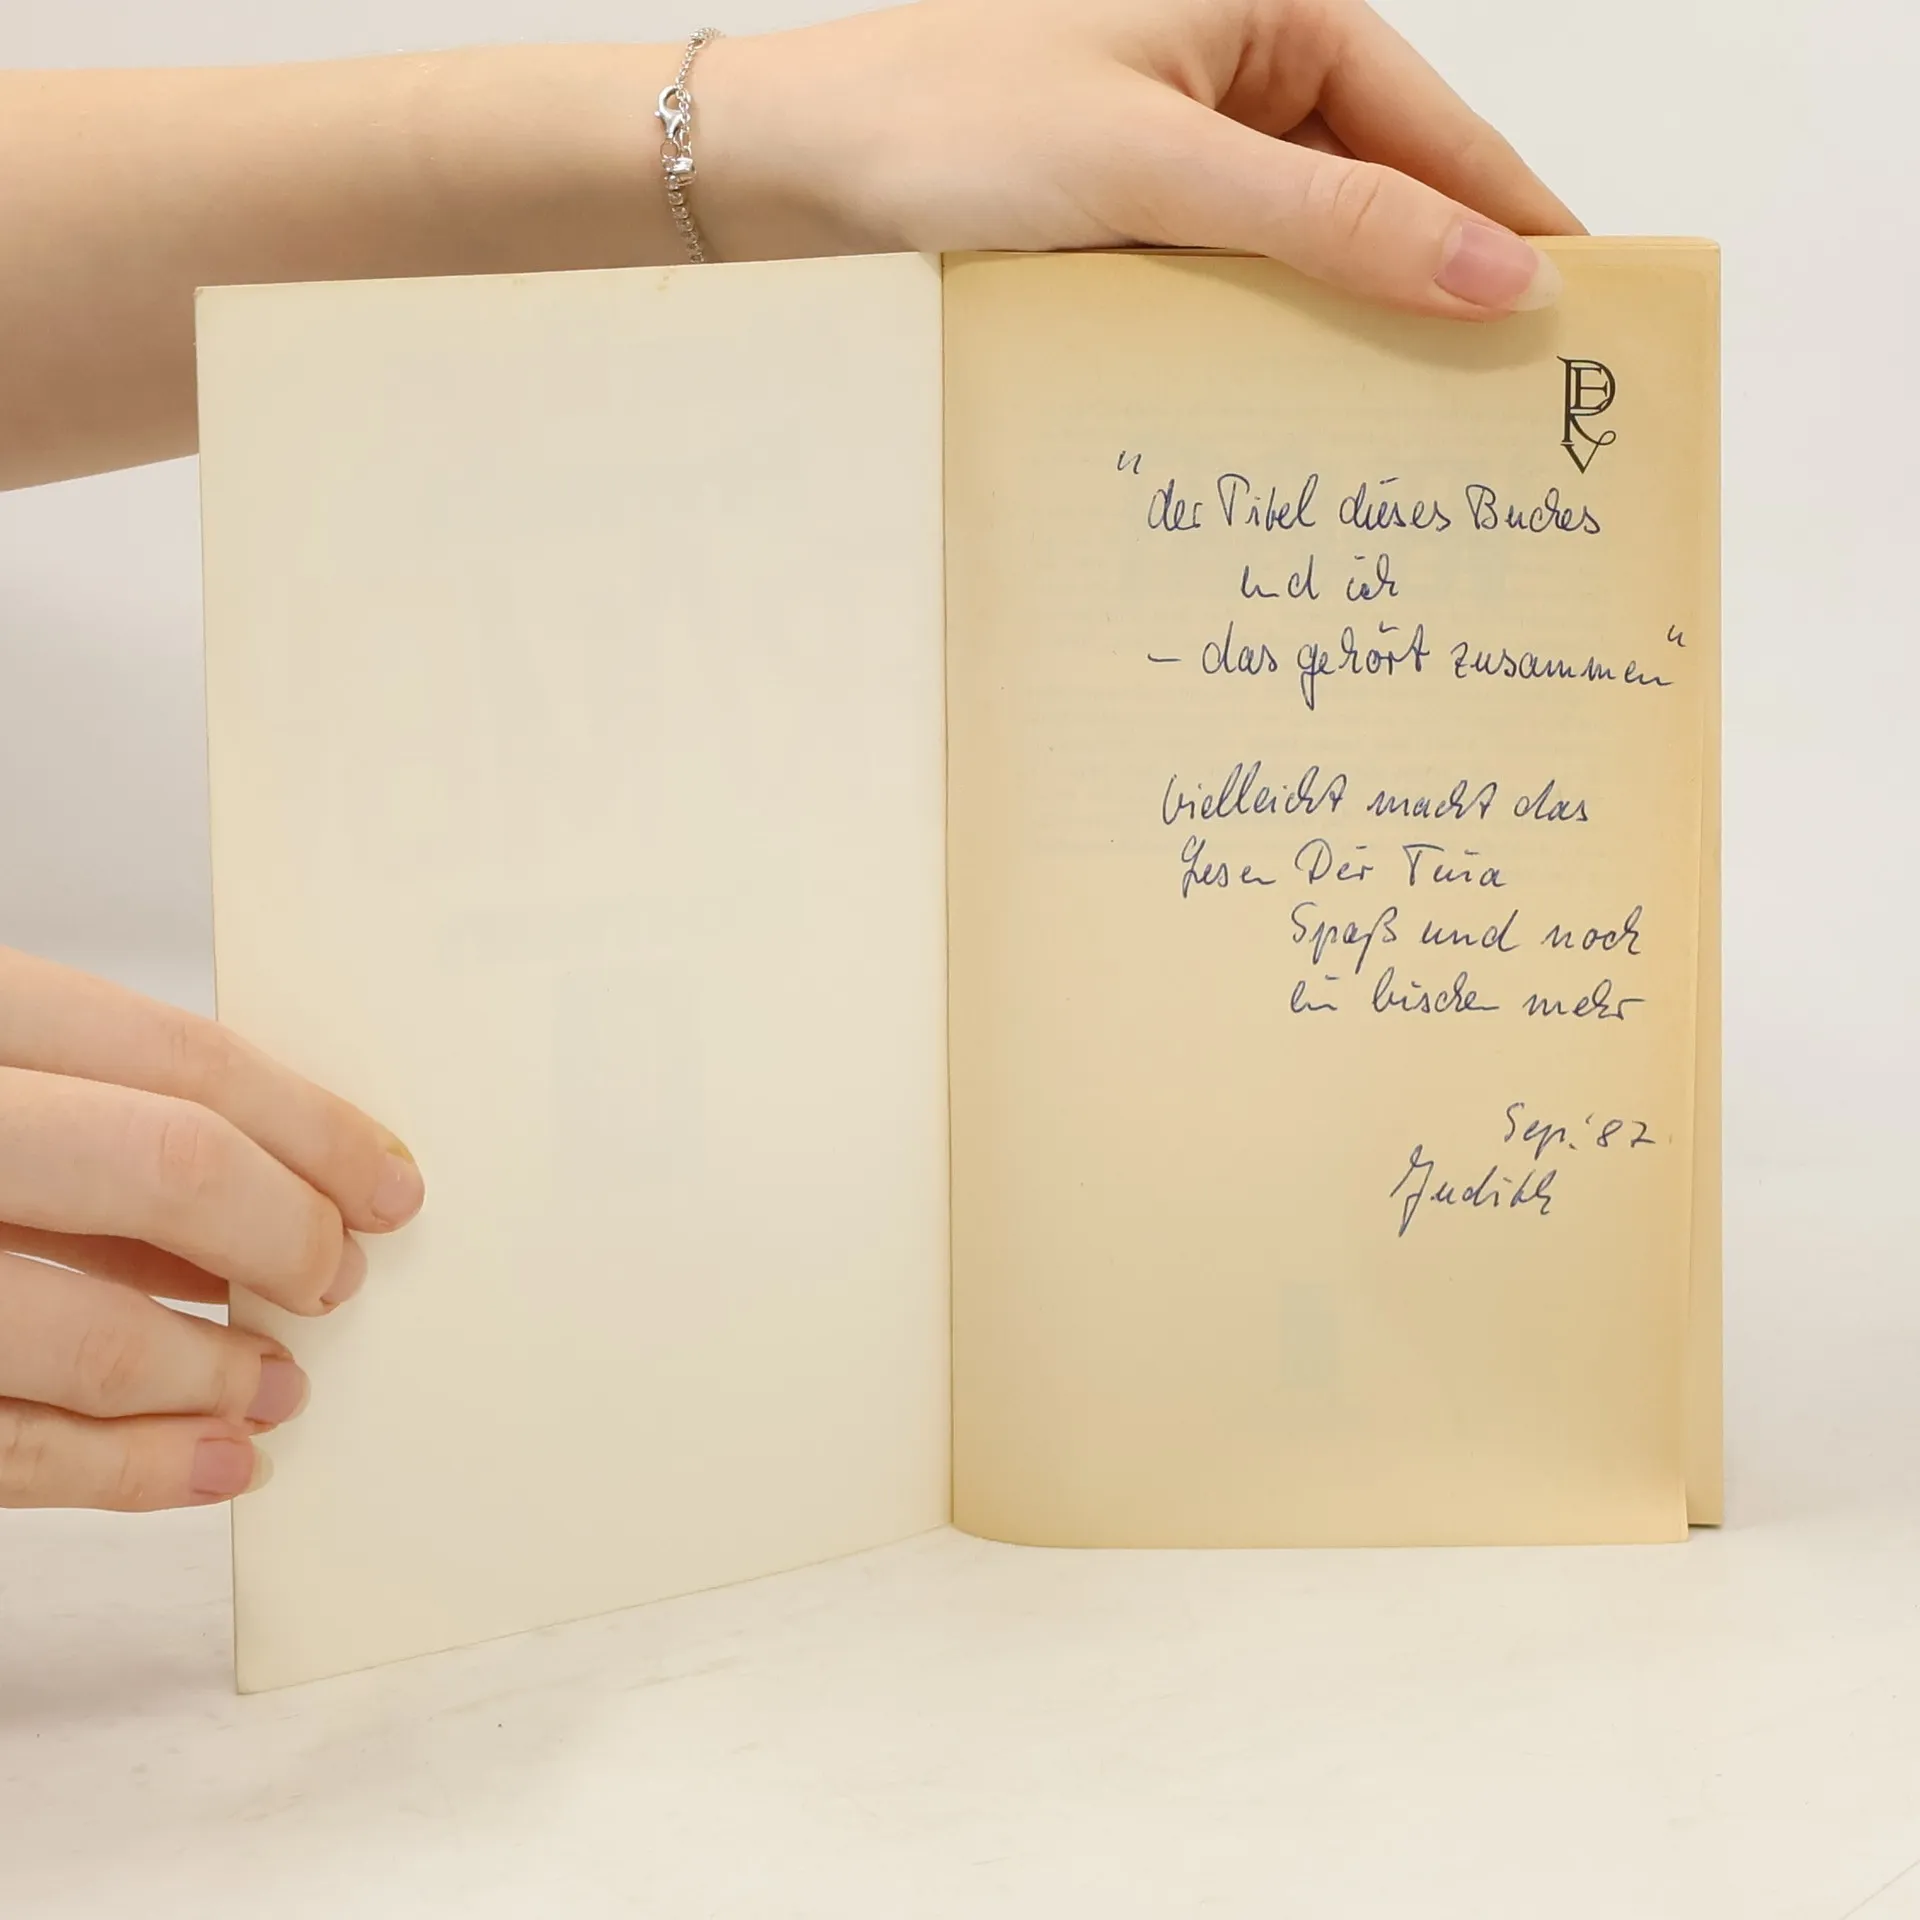 PERV
"der Titel dieses Buches
und ich
– das gehört zusammen"
Vielleicht macht das
Lesen Dir Tina
Spaß und noch
ein bischen mehr
Sep. '87
Judith